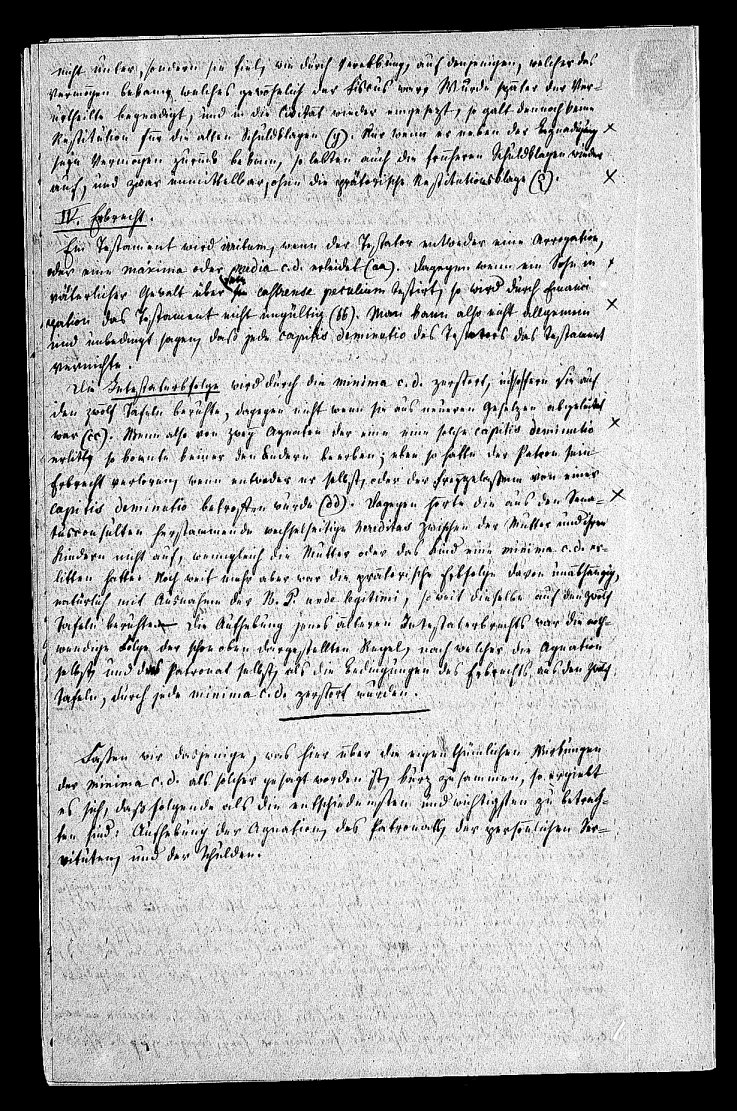 nicht unter, sondern sie fiel, wie durch Vererbung, auf denjenigen, welcher das
Vermögen bekam, welches gewöhnlich der Fiscus war. Wurde später der Ver-
urtheilte begnadigt, und in die Civität wieder eingesetzt, so galt dennoch keine
Restitution für die alten Schuldklagen (y). Nur wenn er neben der Begnadigung
sein Vermögen zurück bekam, so lebten auch die früheren Schuldklagen wieder
auf, und zwar unmittelbar, ohne die prätorische Restitutionsklage (z).
IV. Erbrecht.
Ein Testament wird irritum, wenn der Testator entweder eine Arrogation,
oder eine maxima oder media c. d. erleidet (aa). Dagegen wenn ein Sohn in
väterlicher Gewalt über sein castrense peculium testirt, so wird durch Emanci
pation das Testament nicht ungültig (bb). Man kann also nicht allgemein
und unbedingt sagen, daß jede capitis deminutio des Testators das Testament
vernichte.
Die Intestaterbfolge wird durch die minima c. d. zerstört, insofern sie auf
den zwölf Tafeln beruhte, dagegen nicht wenn sie aus neueren Gesetzen abgeleitet
war (cc). Wenn also von zwey Agnaten der eine eine solche capitis deminutio
erlitt, so konnte keiner den Andern beerben; eben so hatte der Patron sein
Erbrecht verloren, wenn entweder er selbst, oder der Freygelassene von einer
capitis deminutio betroffen wurde (dd). Dagegen hörte die aus den Sena-
tusconsulten herstammende wechselseitige hereditas zwischen der Mutter und ihren
Kindern nicht auf, wenngleich die Mutter oder das Kind eine minima c. d. er-
litten hatte. Noch weit mehr aber war die prätorische Erbfolge davon unabhängig,
natürlich mit Ausnahme der B. P. unde legitimi, soweit dieselbe auf den zwölf
Tafeln beruhte. – Die Aufhebung jenes älteren Intestaterbrechts war die noth-
wendige Folge der schon oben dargestellten Regel, nach welcher die Agnation
selbst, und das Patronat selbst, als die Bedingungen des Erbrechts aus den zwölf
Tafeln, durch jede minima c. d. zerstört wurden.
Fassen wir dasjenige, was hier über die eigenthümlichen Wirkungen
der minima c. d. als solcher gesagt worden ist, kurz zusammen, so ergiebt
es sich, daß folgende als die entschiedensten und wichtigsten zu betrach-
ten sind: Aufhebung der Agnation, des Patronats, der persönlichen Ser-
vituten, und der Schulden.